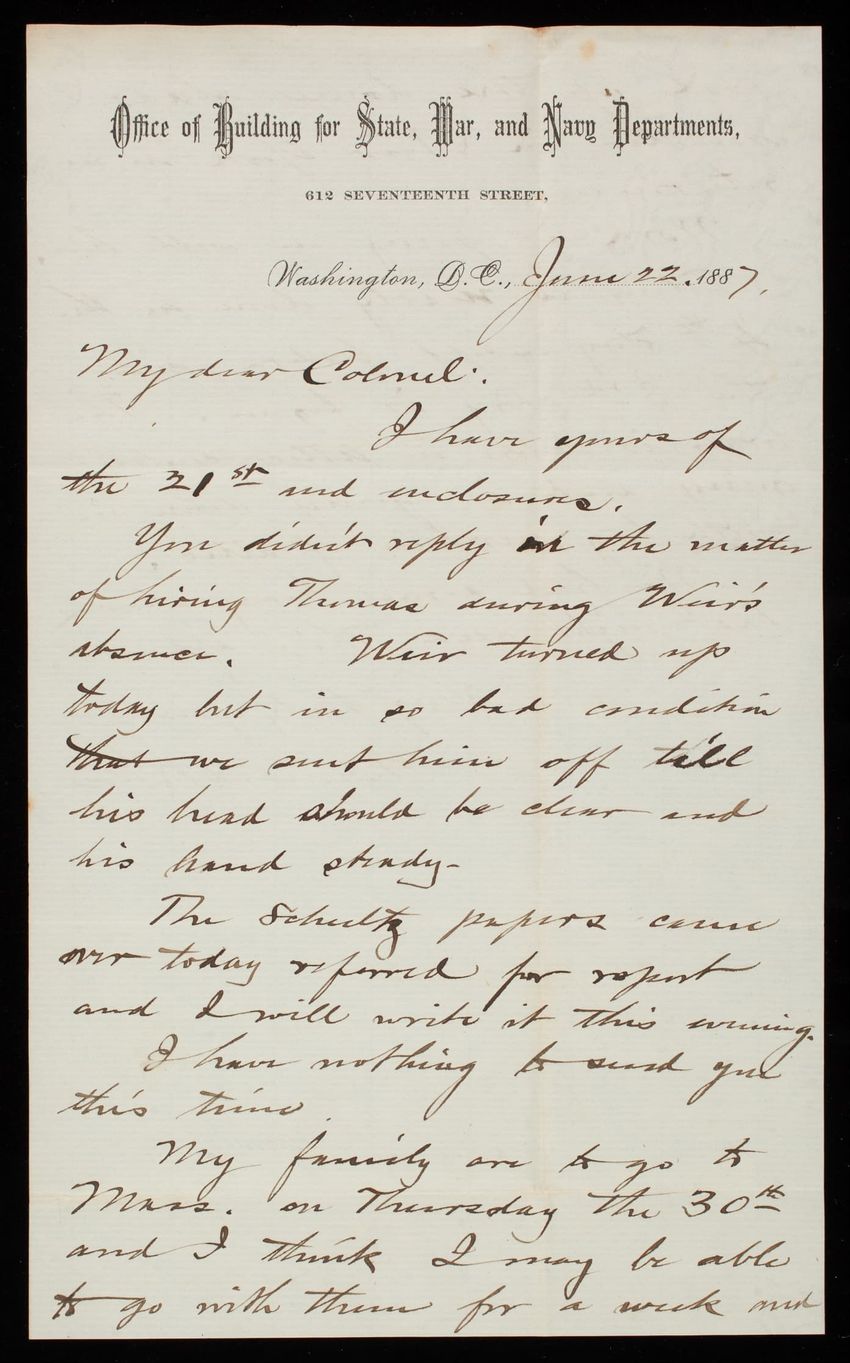 Office of Building for State, War, and Navy Departments,
612 SEVENTEENTH STREET,
Washington, D. C., June 22. 1887.
My dear Colonel:
I have yours of
the 21st and enclosures.
You didn't reply in the matter
of hiring Thomas during Weir's
absence. Weir turned up
today but in so bad condition
that we sent him off till
his head should be clear and
his hand steady-
The Schultz papers came
over today referred for report
and I will write it this evening.
I have nothing to send you
this time.
My family are to go to
Mass. on Thursday the 30th
and I think I may be able
to go with them for a week and